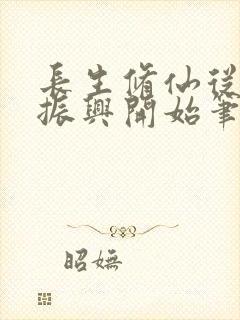 長生脩仙從
振興開始筆
昭嫵